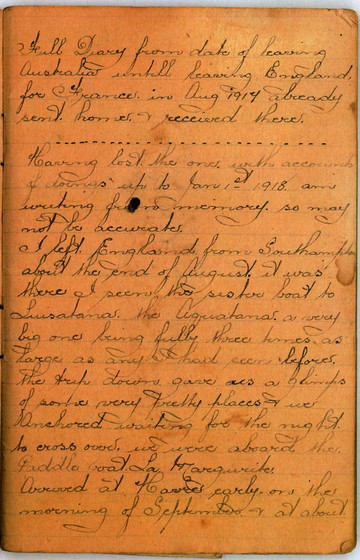 Full Diary from date of leaving
Australia untill leaving England
for France. in Aug 1917 already
sent home. & received there.
Having lost the one, with accounts
of doings up to Jan 1st 1918. am
writing from memory. so may
not be accurate.
I left England from Southampton
about the end of August. it was
there I seen the sister boat to
Lusatana. the Aquatana. a very
big one being fully three times as
large as any I had seen before.
The trip down gave us a glimps
of some very pretty places & we
Anchored waiting for the night
to cross over. we were aboard the
Paddle boat. La Marguerite.
Arrived at Havre early on the
morning of September & at about